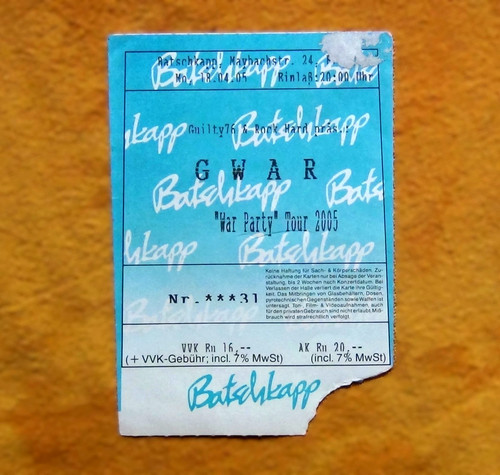 Batschkapp, Maybachstr. 24,
Mo. 18.04.05 Einlaß:20:00 Uhr
Guilty76 & Rock Hard präs.:
GWAR
"War Party" Tour 2005
Batschkapp
Keine Haftung für Sach- & Körperschäden. Zu-
rücknahme der Karten nur bei Absage der Veran-
staltung, bis 2 Wochen nach Konzertdatum. Bei
Verlassen der Halle verliert die Karte ihre Gültig-
keit. Das Mitbringen von Glasbehältern, Dosen,
pyrotechnischen Gegenständen sowie Waffen ist
untersagt. Ton-, Film- & Videoaufnahmen, auch
für den privaten Gebrauch sind nicht erlaubt. Miß-
brauch wird strafrechtlich verfolgt.
Nr.-***31
VVK Ru 16,-- AK Ru 20,--
(+ VVK-Gebühr; incl. 7% MwSt) (incl. 7% MwSt)
Batschkapp